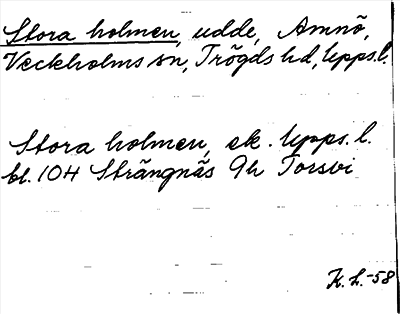 Stora holmen, udde, Amnö,
Veckholms sn, Trögds hd, Upps.l.
Stora holmen, ek. Upps.l.
bl. 104 Strängnäs 9h Torsvi
K.L.-58